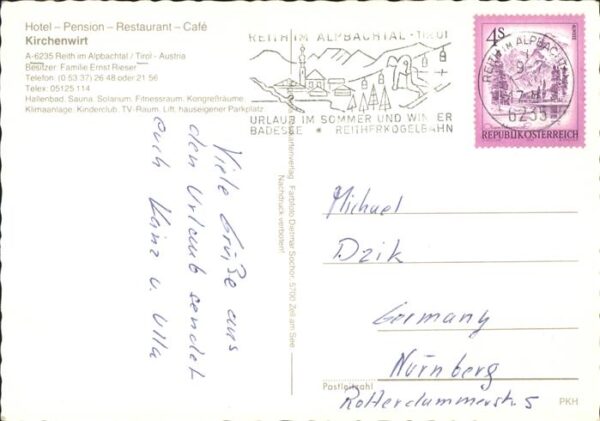 Hotel – Pension – Restaurant – Café
Kirchenwirt
A-6235 Reith im Alpbachtal / Tirol - Austria
Besitzer: Familie Ernst Rieser
Telefon (0 53 37) 26 48 oder 21 56
Telex: 05125 114
Hallenbad, Sauna, Solarium, Fitnessraum, Kongreßräume,
Klimaanlage, Kinderclub, TV-Raum, Lift, hauseigener Parkplatz
REITH IM ALPBACHTAL - TIROL
URLAUB IM SOMMER UND WINTER
BADESEE * REITHERKOGELBAHN
4S
REITH IM ALPBACHTAL
6235
REPUBLIK ÖSTERREICH
Viele Grüße aus
den Urlaub sendet
euch Heinz u. Ulla
Kartenverlag Farbfoto Dietmar Sochor, 5700 Zell am See
Nachdruck verboten!
Michael
Dzik
Germany
Nürnberg
Postleitzahl
Rotterdammerstr. 5
PKH